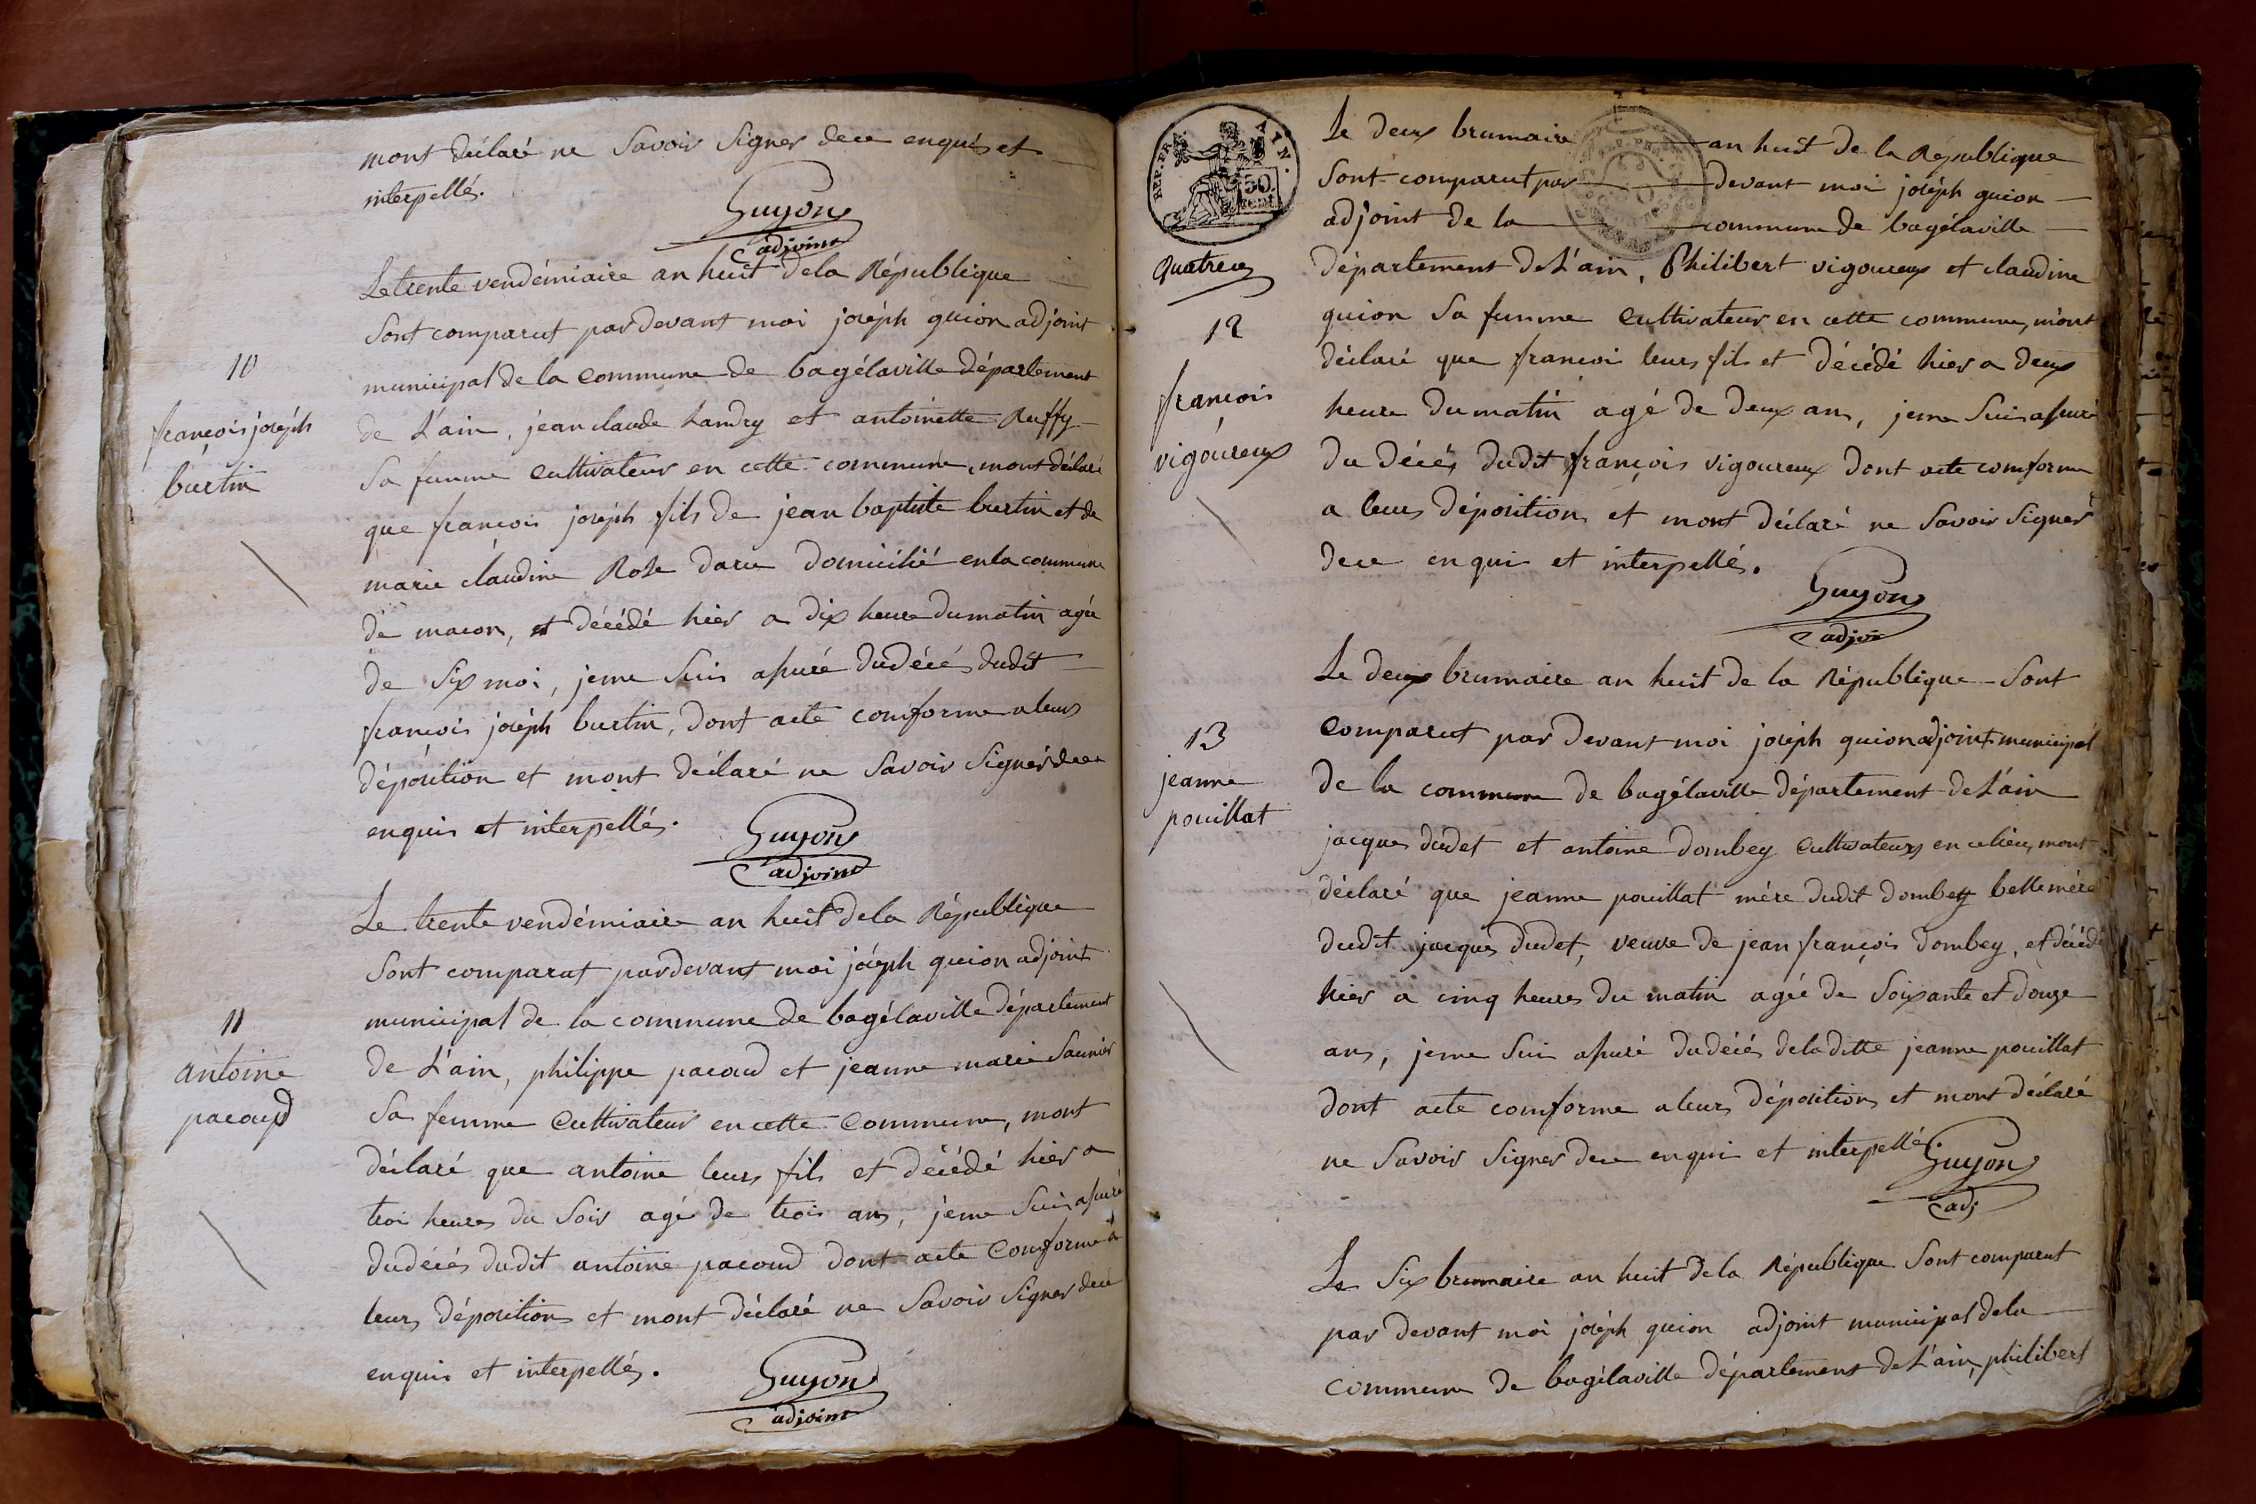 mont déclaré ne Savoir Signer dece enquis et
interpellés.
Guyon
adjoint
Le trente vendémiaire an huit dela République
Sont comparut pardevant moi joséph guion adjoint
municipal de la Commune de bagélaville département
10
françois joséph
burtin
de L'ain, jean claude Landry et antoinette Ruffy
Sa femme Cultivateur en cette commune, mont déclaré
que francois joséph fils de jean baptiste burtin et de
marie claudine Rose daru domicilié en la commune
de macon, et décédé hier a dix heure dumatin agée
de Six moi, jeme Suis assuré dudécés dudit
francois joséph burtin, dont acte comforme a leurs
déposition et mont déclaré ne Savoir Signér dece
enquis et interpellés.
Guyon
adjoint
Le trente vendémiaire an huit dela République
Sont comparut pardevant moi joséph guion adjoint
11
antoine
pacoud
municipal de la commune de bagélaville département
de L'ain, philippe pacoud et jeanne marie Saunier
Sa femme Cultivateur en cette Commune, mont
déclaré que antoine leurs fils et décédé hier a
troi heures du Soir agé de trois ans, jeme Suis assuré
dudécés dudit antoine pacoud dont acte Comforme a
leurs dépositions et mont déclaré ne Savoir Signer dece
enquis et interpellés.
Guyon
adjoint
REP. FRA.
AIN.
50.
cent.
quatre
Le deux brumaire an huit de la République
Sont comparut par devant moi joséph guion
adjoint de la commune de bagélaville
département de L'ain, Philibert vigoureux et claudine
12
francois
vigoureux
guion Sa femme Cultivateur en cette commune, m'ont
déclaré que francoi leurs fils et décédé hier a deux
heure du matin agé de deux ans, jeme Suis assuré
du décés dudit françois vigoureux dont acte comforme
a leurs dépositions et mont déclaré ne Savoir Signer
dece enquis et interpellés.
Guyon
adjoi
Le deux brumaire an huit de la République Sont
13
jeanne
pouillat
Comparut par devant moi joséph guion adjoint municipal
de la commune de bagélaville département de L'ain
jacques dudet et antoine dombey Cultivateurs en celieu, mont
déclaré que jeanne pouillat mére dudit dombey belle mére
dudit jacques dudet, veuve de jean françois dombey, et décédé
hier a cinq heures du matin agée de Soixante et douze
ans, jeme Suis assuré dudécés deladitte jeanne pouillat
dont acte comforme aleurs dépositions et mont déclaré
ne Savoir Signer dece enquis et interpellés.
Guyon
adj
Le Six brumaire an huit dela République Sont comparut
par devant moi joséph guion adjoint municipal dela
commune de bagélaville département de L'ain, philibert